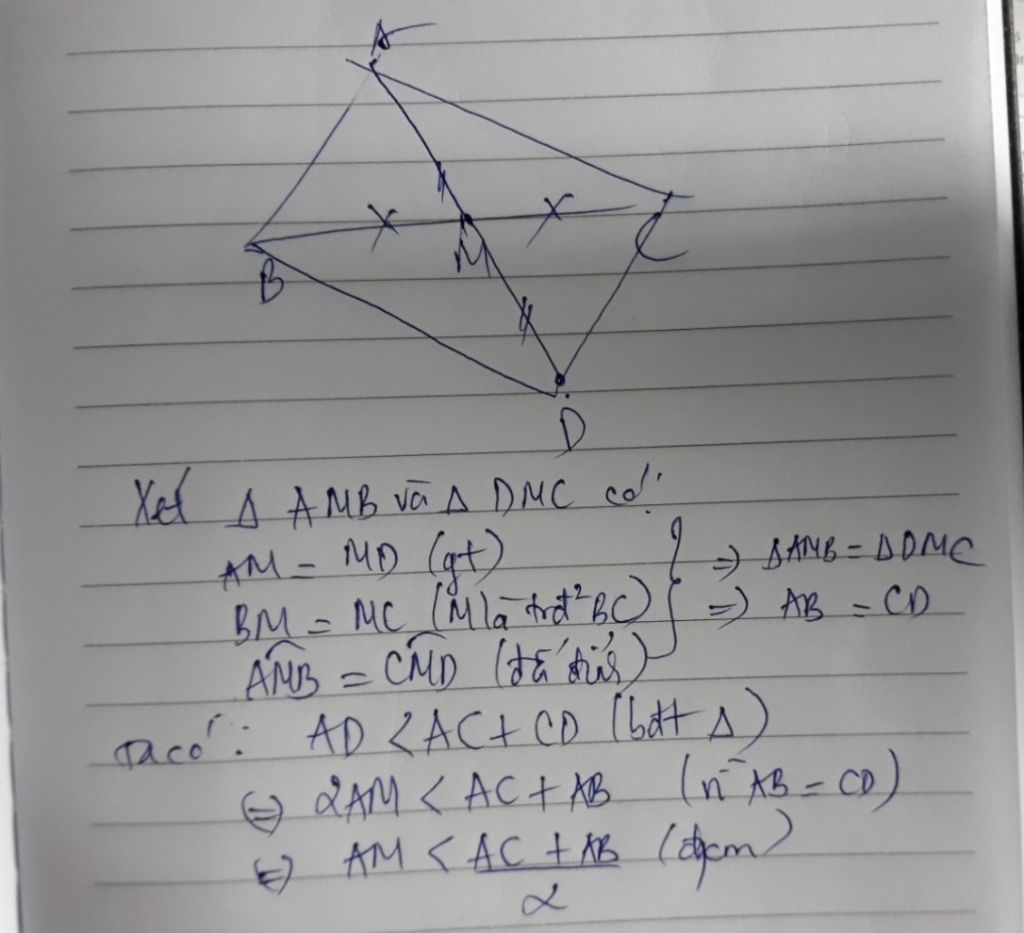 A
B
M
C
D
Xét Δ AMB và Δ DMC có:
AM = MD (gt)
BM = MC (M là trđ² BC)
AMB = CMD (đđ)
} => ΔAMB = ΔDMC
=> AB = CD
Ta có: AD < AC + CD (bđt Δ)
<=> 2AM < AC + AB (AB = CD)
<=> AM < AC + AB / 2 (đpcm)